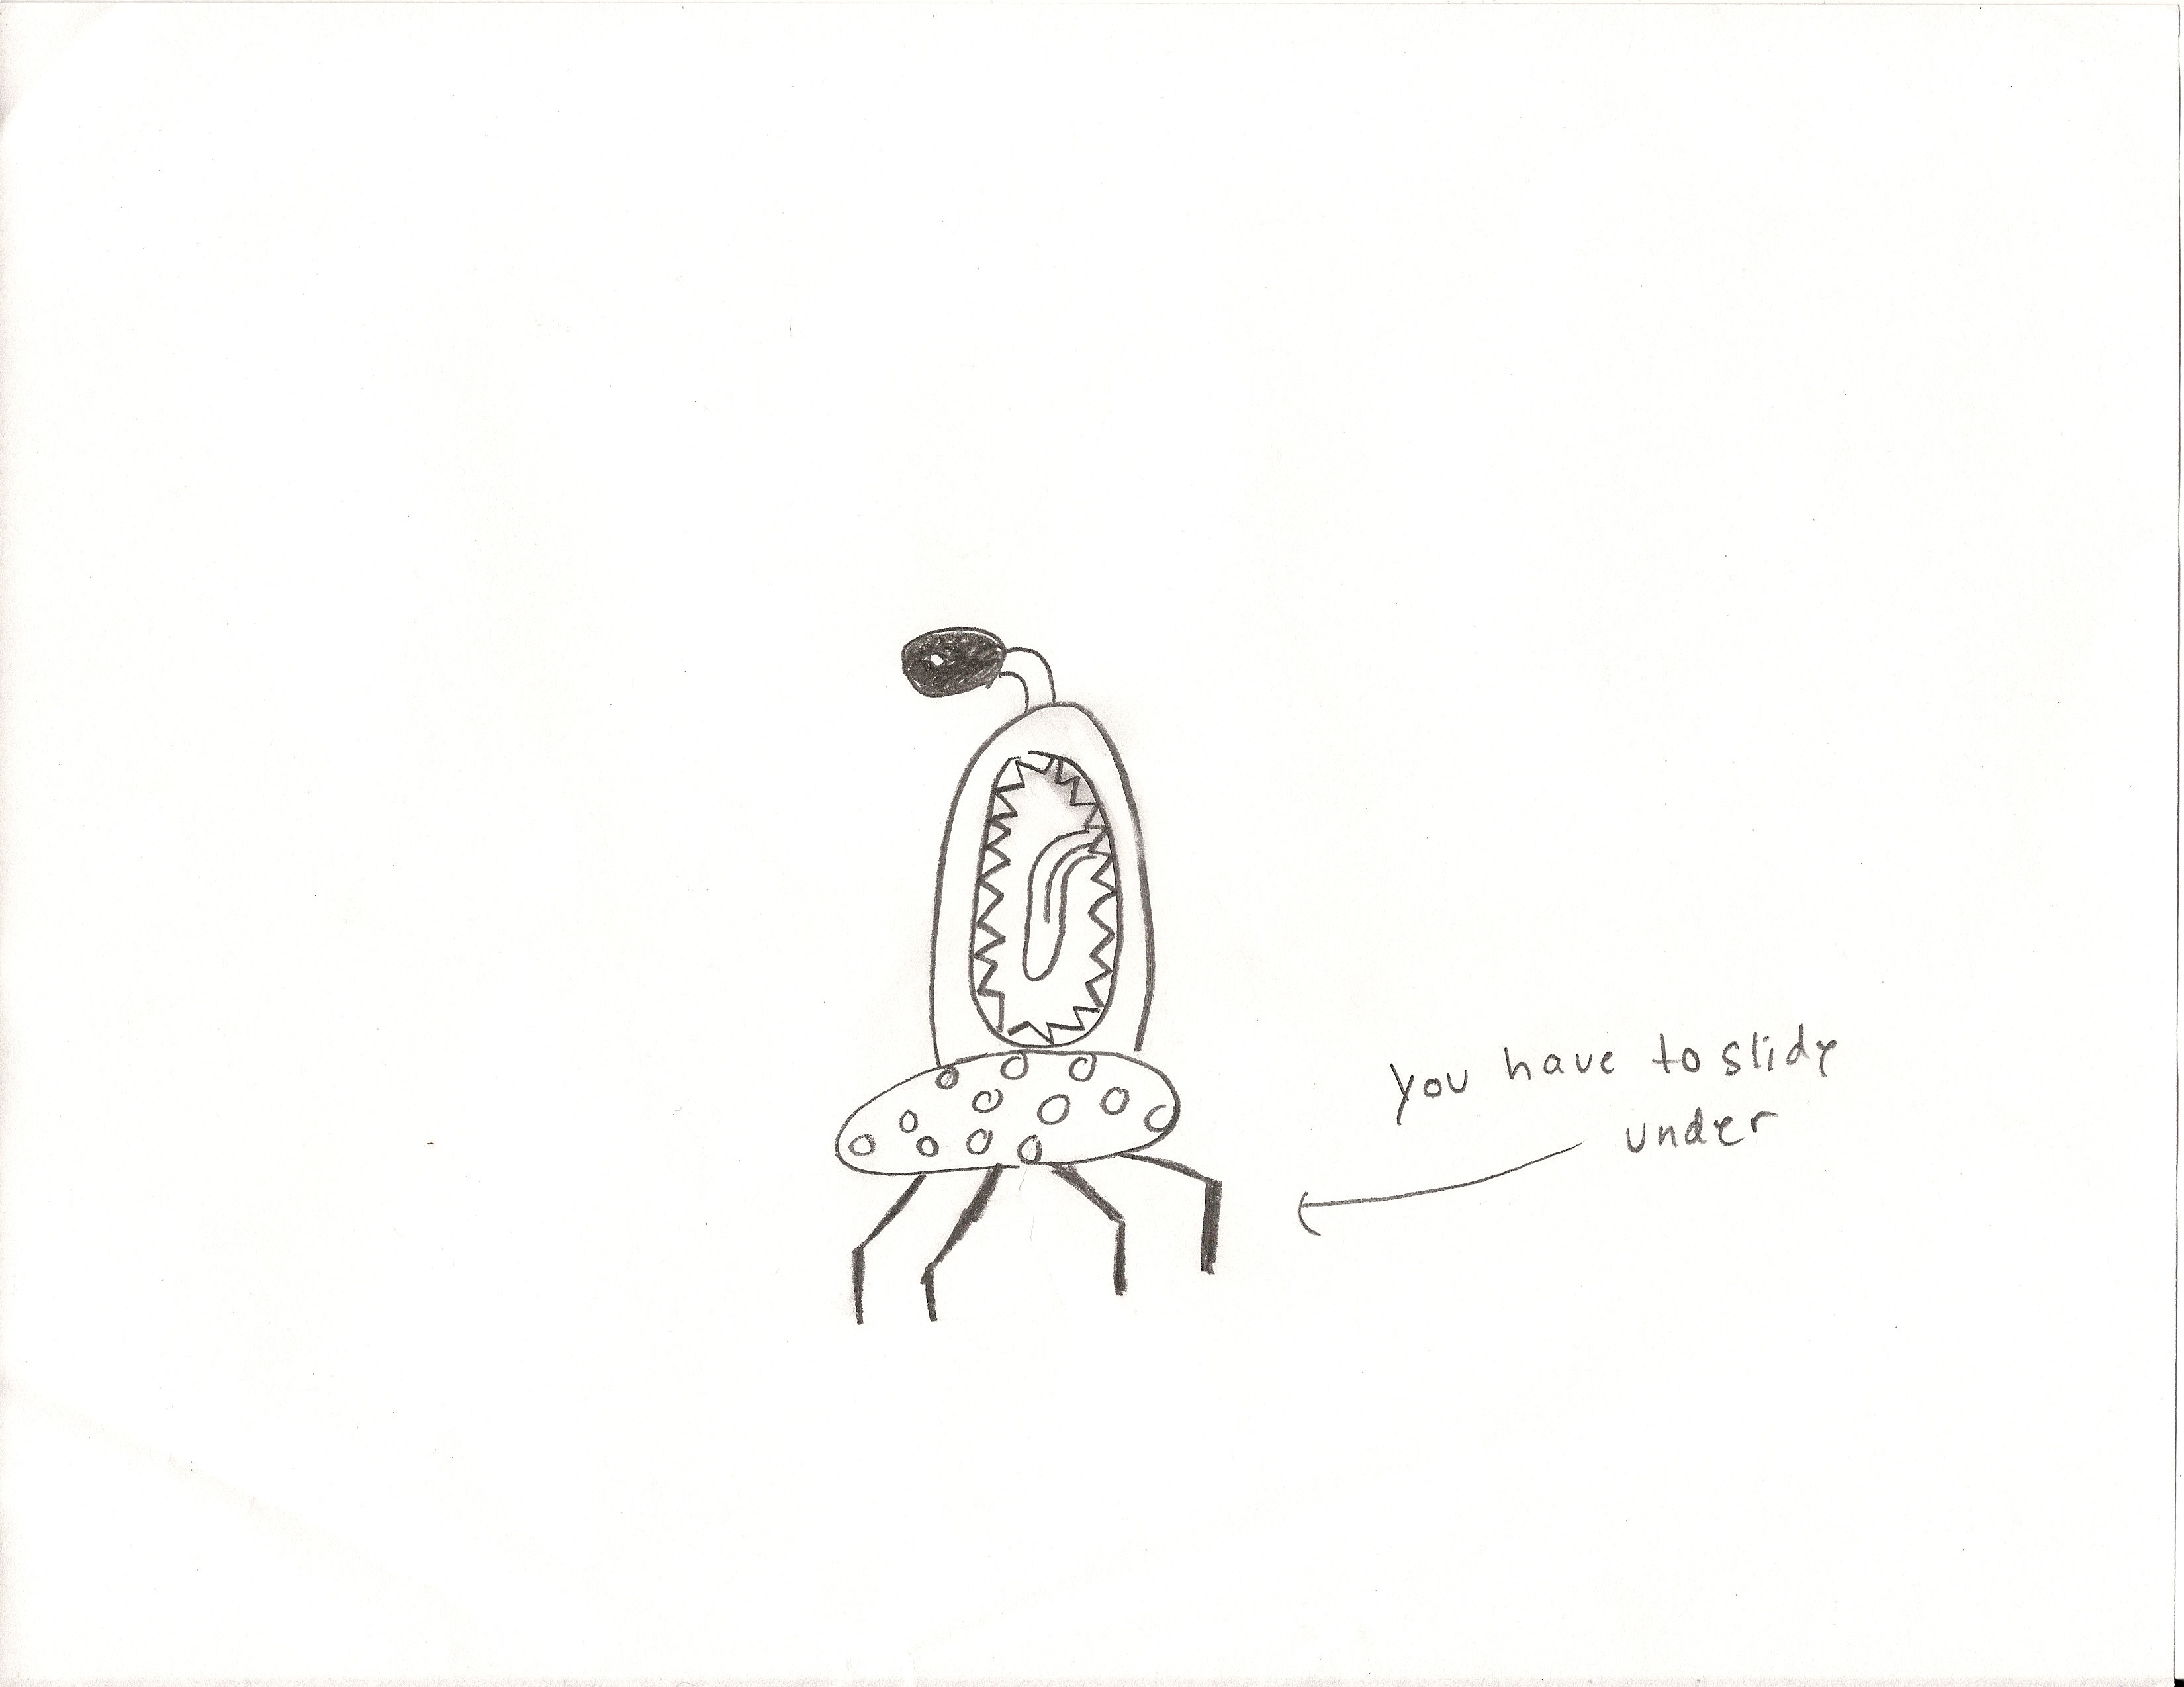 you have to slide
under